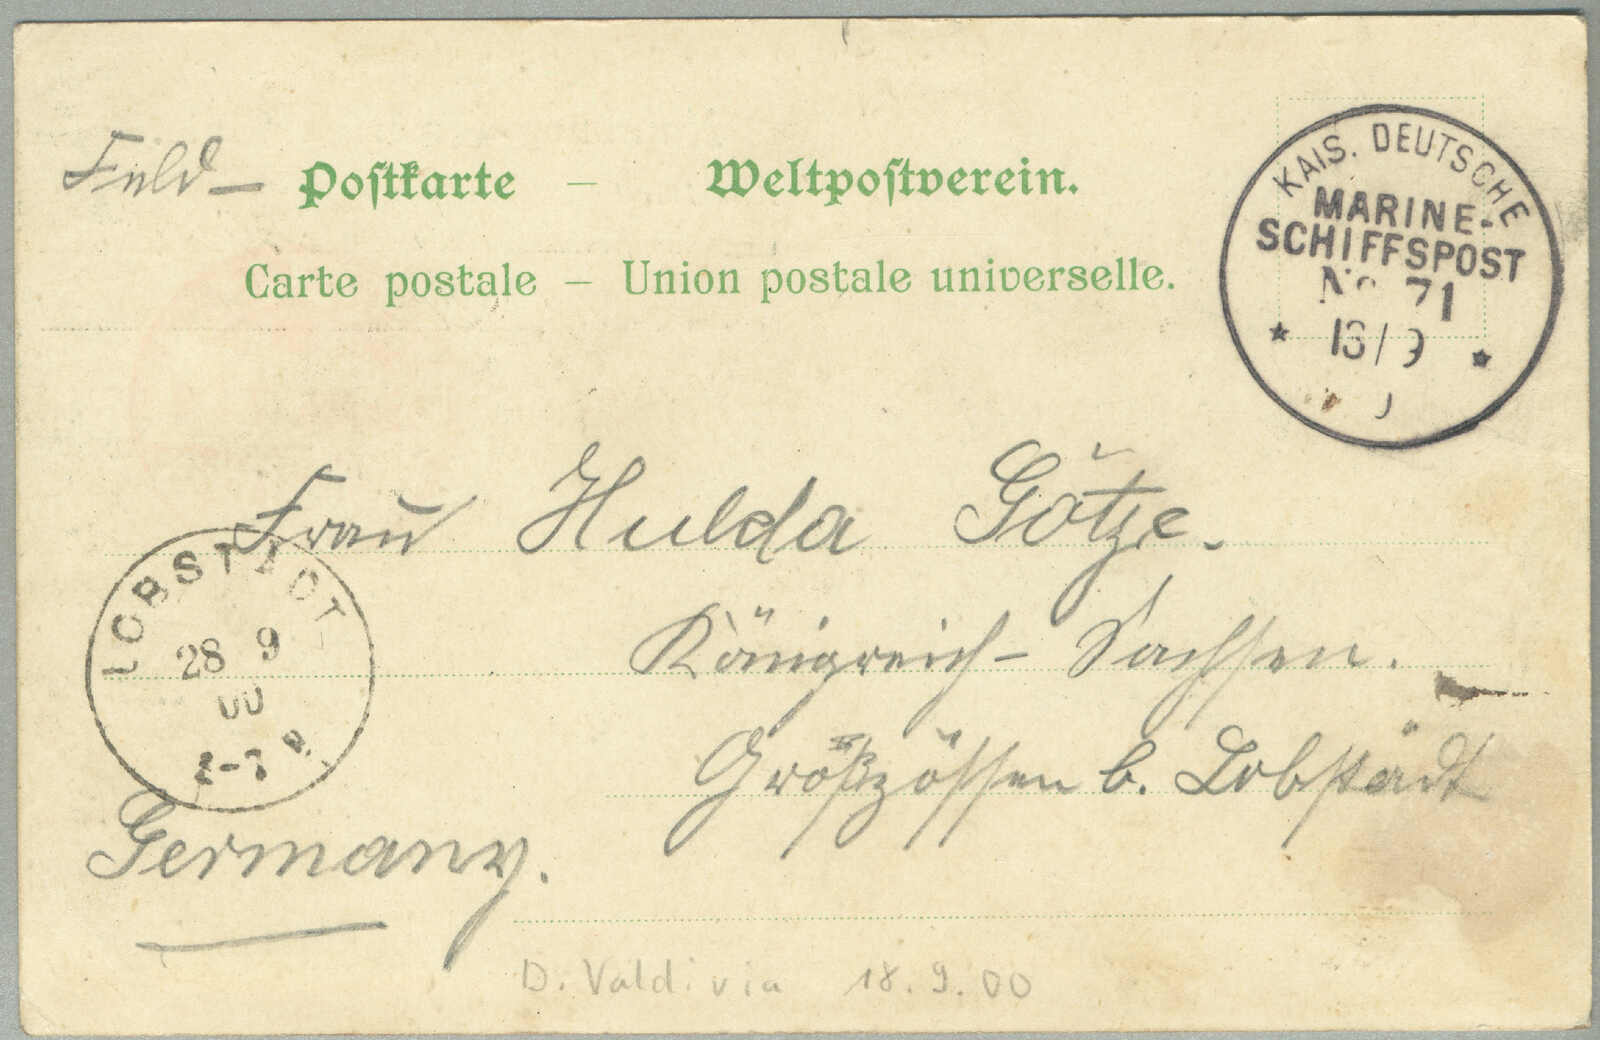 Feld- Postkarte – Weltpostverein.
Carte postale – Union postale universelle.
KAIS. DEUTSCHE
MARINE-
SCHIFFSPOST
No 71
18/9
Frau Hulda Götze.
Königreich- Sachsen.
Großzössen b. Lobstädt
LOBSTÄDT
28 9
00
Germany.
D. Valdivia 18.9.00